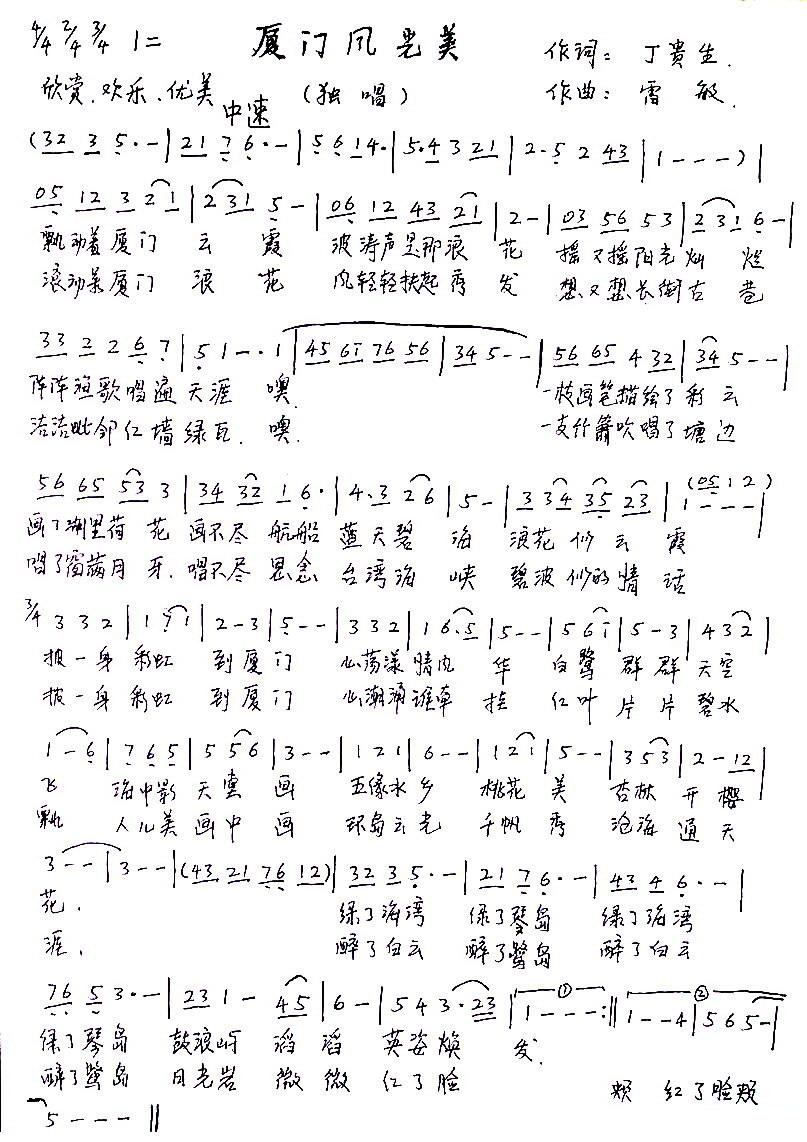 4/4 2/4 3/4 1= 厦门风光美 作词：丁贵生.
欣赏.欢乐.优美 中速 (独唱) 作曲：雷敏.
(32 3 5·-|21 7 6·-|5 6 14·|5·4 3 21|2·5 2 43|1---)|
05 12 3 2 1|2 31 5-|06 12 43 21|2-|03 56 53|2 31 6-|
飘动着厦门 云 霞 波涛声是那浪 花 摇又摇阳光灿 烂
滚动着厦门 浪 花 风轻轻扶起秀 发 想又想长街古 巷
33 2 2 6 7|5 1--·1|45 61 76 56|34 5--|56 65 4 32|34 5--|
阵阵渔歌唱遍 天涯 噢. 一枝画笔描绘了彩 云
沽沽毗邻红墙绿瓦. 噢. 一支竹箫吹唱了塘边
56 65 53 3|34 32 1 6·|4·3 26|5-|3 34 35 23|1---| (05 12)
画了湖里荷 花 画不尽 航船 蓝天碧 海 浪花 似 云 霞
唱了窗满月 牙. 唱不尽 思念 台湾海 峡 碧波似的情 话
3/4 3 3 2|1 7 1|2-3|5--|3 3 2|1 6·5|5--|5 6 1|5-3|4 3 2|
披一身 彩虹 到厦门 心荡漾情内 华 白鹭 群 群 天空
披一身 彩虹 到厦门 心潮涌谁牵 挂 红叶 片 片 碧水
1-6|7 6 5|5 5 6|3--|1 2 1|6--|1 2 1|5--|3 5 3|2-12|
飞 海中影 天 画 五缘水 乡 桃花 美 杏林 开 樱
飘 人儿美 画中 画 环岛云光 千帆 秀 沧海 通 天
3--|3--|(43 21 76 12)|32 3 5·-|21 7 6·-|43 4 6·-|
花. 绿了海湾 绿了琴岛 绿了海湾
涯. 醉了白云 醉了鹭岛 醉了白云
76 5 3·-|23 1- 45|6-|5 4 3·23|① 1---:|② 1--4|5 6 5-|
绿了琴岛 鼓浪屿 滔 滔 英姿焕 发.
醉了鹭岛 日光岩 微 微 红了脸 颊 红了脸颊
5---||